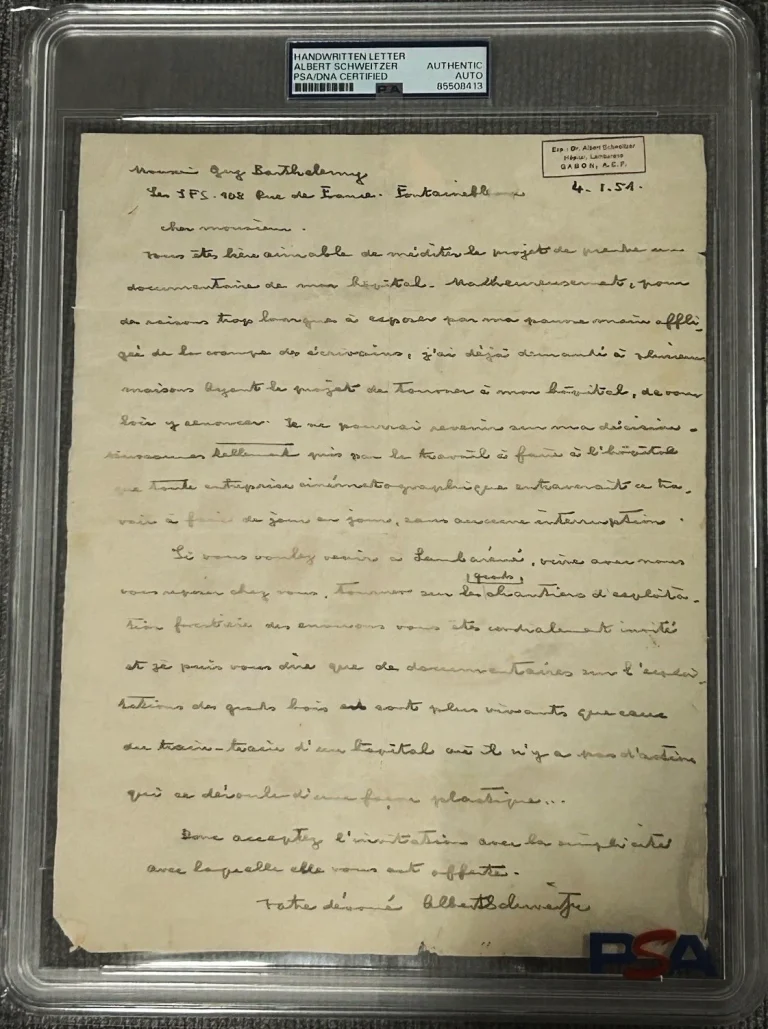 HANDWRITTEN LETTER
ALBERT SCHWEITZER AUTHENTIC
PSA/DNA CERTIFIED AUTO
PSA 85508413
Exp.: Dr. Albert Schweitzer
Hôpital, Lambarene
GABON, A.E.F.
Monsieur Guy Barthelemy
Les IFS. 108 Rue de France. Fontainebleau
4.1.51.
cher monsieur.
Vous êtes bien aimable de méditer le projet de prendre un
documentaire de mon hôpital. Malheureusement, pour
des raisons trop longues à exposer par ma pauvre main affli-
gée de la crampe des écrivains, j'ai déjà demandé à plusieurs
maisons ayant le projet de tourner à mon hôpital, de vou
loir y renoncer. Je ne pourrai revenir sur ma décision.
tellement pris par le travail à faire à l'hôpital
que toute entreprise cinématographique entraverait ce tra-
vail à faire de jour en jour, sans aucune interruption.
Si vous voulez venir à Lambaréné, vivre avec nous
vous reposer chez nous, tourner sur les chantiers d'exploita-
tion forestière des environs vous êtes cordialement invité
et je puis vous dire que de documentaires sur l'exploi-
tations des grands bois sont plus vivants que ceux
du train-train d'un hôpital où il n'y a pas d'action
qui se déroule d'une façon plastique...
Donc acceptez l'invitation avec la simplicité
avec laquelle elle vous est offerte.
Votre dévoué Albert Schweitzer
PSA